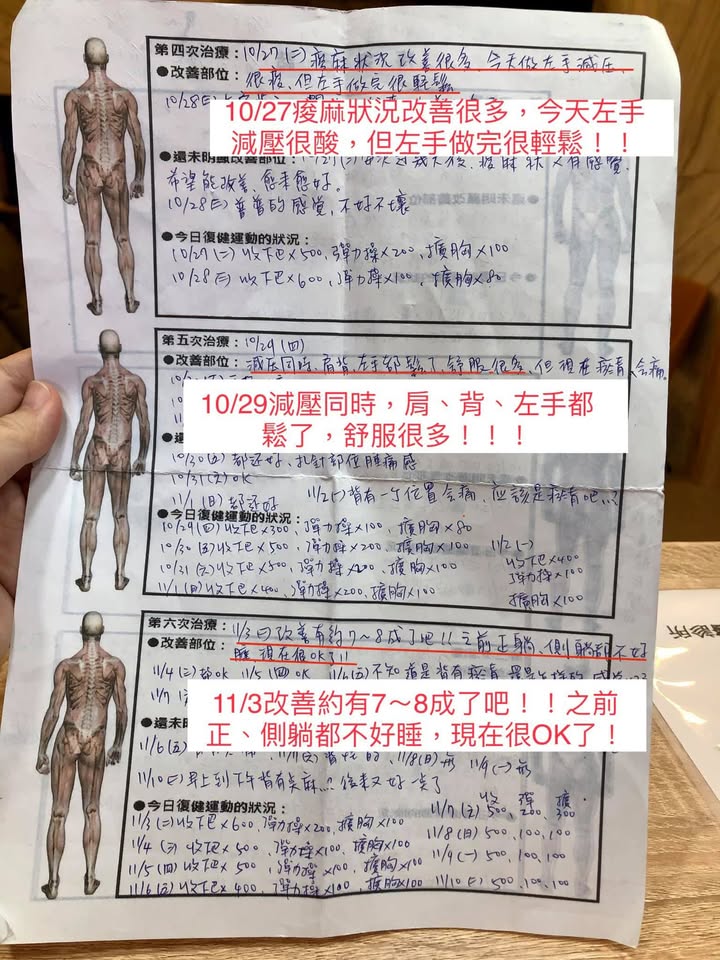 第四次治療：10/27(二)痠麻狀況改善很多，今天做左手減压，
●改善部位：很痠，但左手做完很輕鬆
10/28(三)
10/27痠麻狀況改善很多，今天左手
減壓很酸，但左手做完很輕鬆！！
●還未明顯改善部位：
希望能改善，愈來愈好。
10/28(三)普普的感覺，不好不壞
●今日復健運動的狀況：
10/27(二)收下巴×500，彈力操×200，擴胸×100
10/28(三)收下巴×600，彈力操×100，擴胸×80
第五次治療：10/29(四)
●改善部位：減压同時，肩背、左手都鬆了，舒服很多，但現在瘀青，會痛。
10/29減壓同時，肩、背、左手都
鬆了，舒服很多！！！
10/30(五)都还好，扎針部位腫痛感
10/31(六)OK
11/1(日)都还好 11/2(一)背有一个位置会痛，应該是瘀青吧..?
●今日復健運動的狀況：
10/29(四)收下巴×300，彈力操×100，擴胸×80
10/30(五)收下巴×500，彈力操×200，擴胸×100
10/31(六)收下巴×500，彈力操×200，擴胸×100
11/1(日)收下巴×400，彈力操×200，擴胸×100
11/2(一)
收下巴×400
彈力操×100
擴胸×100
第六次治療：11/3(二)改善有約7～8成了吧!!之前正躺、側躺都不好
●改善部位：睡，現在很OK了!!
11/4(三)都OK 11/5(四)OK 11/6(五)不知道是背有瘀青
11/7
11/3改善約有7～8成了吧！！之前
正、側躺都不好睡，現在很OK了！
●還未明
11/6(五) 11/8(日)無 11/9(一)無
11/10(二)早上到下午背有点麻..?後來又好一点了
●今日復健運動的狀況：
11/3(二)收下巴×600，彈力操×200，擴胸×100
11/4(三)收下巴×500，彈力操×100，擴胸×100
11/5(四)收下巴×500，彈力操×100，擴胸×100
11/6(五)收下巴×400，彈力操×100，擴胸×100
收 彈 擴
11/7(六)500，200，300
11/8(日)500，100，100
11/9(一)500，100，100
11/10(二)500，100，100
診所